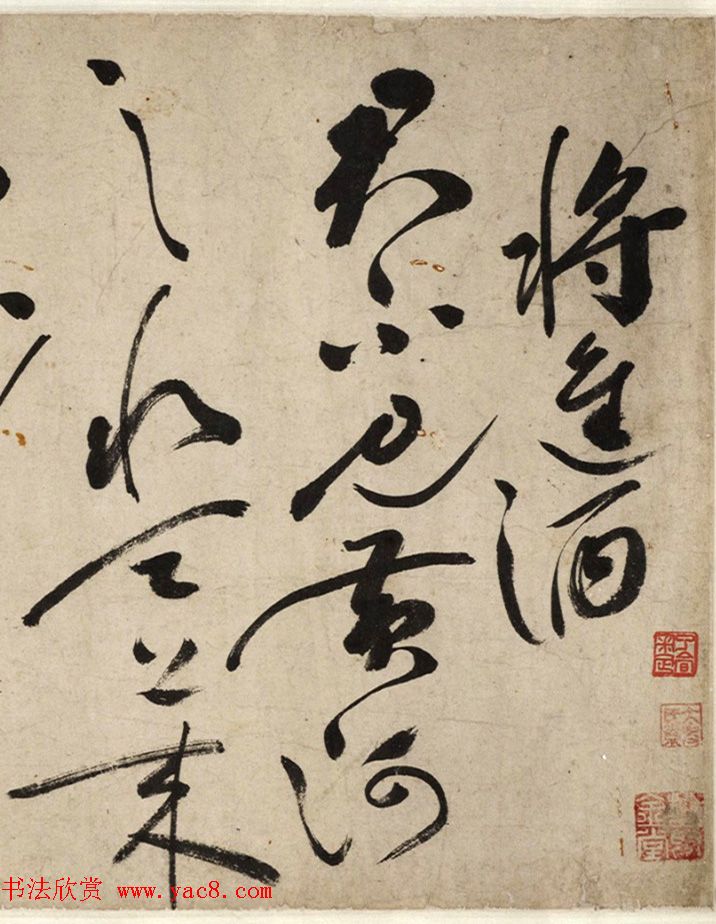 将進酒
君不见黄河
之水天上来
书法欣赏 www.yac8.com